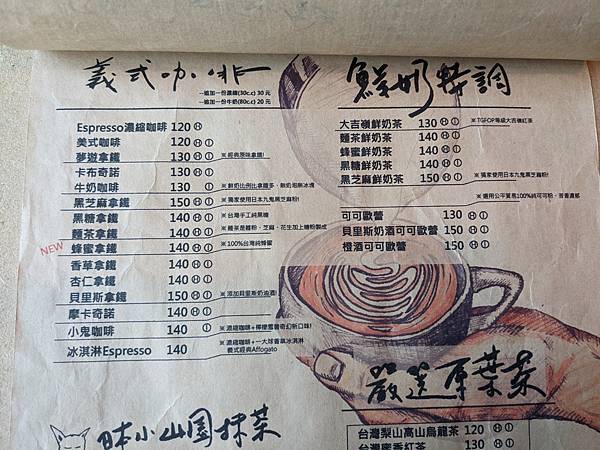 義式咖啡
--追加一份濃縮(30c.c) 30 元
--追加一份牛奶(80c.c) 20 元
Espresso濃縮咖啡 120 Ⓗ
美式咖啡 120 Ⓗ Ⓘ
夢遊拿鐵 130 Ⓗ Ⓘ ※經典原味拿鐵!
卡布奇諾 130 Ⓗ Ⓘ
牛奶咖啡 130 Ⓘ ※鮮奶比例比拿鐵多，無奶泡無冰塊
黑芝麻拿鐵 150 Ⓗ Ⓘ ※獨家使用日本九鬼黑芝麻粉!
黑糖拿鐵 140 Ⓗ Ⓘ ※台灣手工純黑糖
麵茶拿鐵 140 Ⓗ Ⓘ ※麵茶是麵粉、芝麻、花生加上糖粉製成
NEW 蜂蜜拿鐵 140 Ⓗ Ⓘ ※100%台灣純蜂蜜
香草拿鐵 140 Ⓗ Ⓘ
杏仁拿鐵 140 Ⓗ Ⓘ
貝里斯拿鐵 150 Ⓗ Ⓘ ※添加貝里斯奶油酒!
摩卡奇諾 140 Ⓗ Ⓘ
小鬼咖啡 140 Ⓘ ※濃縮咖啡+檸檬蜜香奇幻新口味!
冰淇淋Espresso 140 ※濃縮咖啡+一大球香草冰淇淋
義式經典Affogato
日本小山園抹茶
鮮奶特調
大吉嶺鮮奶茶 130 Ⓗ Ⓘ ※TGFOP等級大吉嶺紅茶
麵茶鮮奶茶 140 Ⓗ Ⓘ
蜂蜜鮮奶茶 140 Ⓗ Ⓘ
黑糖鮮奶茶 140 Ⓗ Ⓘ
黑芝麻鮮奶茶 150 Ⓗ Ⓘ ※獨家使用日本九鬼黑芝麻粉!
※選用公平貿易100%純可可粉，香香濃郁
可可歐蕾 130 Ⓗ Ⓘ
貝里斯奶酒可可歐蕾 150 Ⓗ Ⓘ
橙酒可可歐蕾 150 Ⓗ Ⓘ
嚴選原葉茶
台灣梨山高山烏龍茶 120 Ⓗ Ⓘ
台灣蜜香紅茶 130 Ⓗ Ⓘ